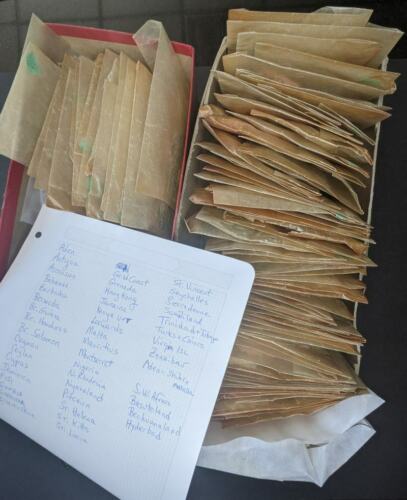 Aden
Antigua
Ascension
Bahamas
Barbados
Bermuda
Br. Guiana
Br. Honduras
Br. Solomon
Cayman
Ceylon
Cyprus
Dominica
Fiji
Gold Coast
Grenada
Hong Kong
Jamaica
Kenya UT
Leewards
Malta
Mauritius
Montserrat
Nigeria
N. Rhodesia
Nyasaland
Pitcairn
St. Helena
St. Kitts
St. Lucia
St. Vincent
Seychelles
Swaziland
Trinidad+Tobago
Turks+Caicos
Virgin Isl
Zanzibar
S.W. Africa
Basutoland
Bechuanaland
Hyderbad